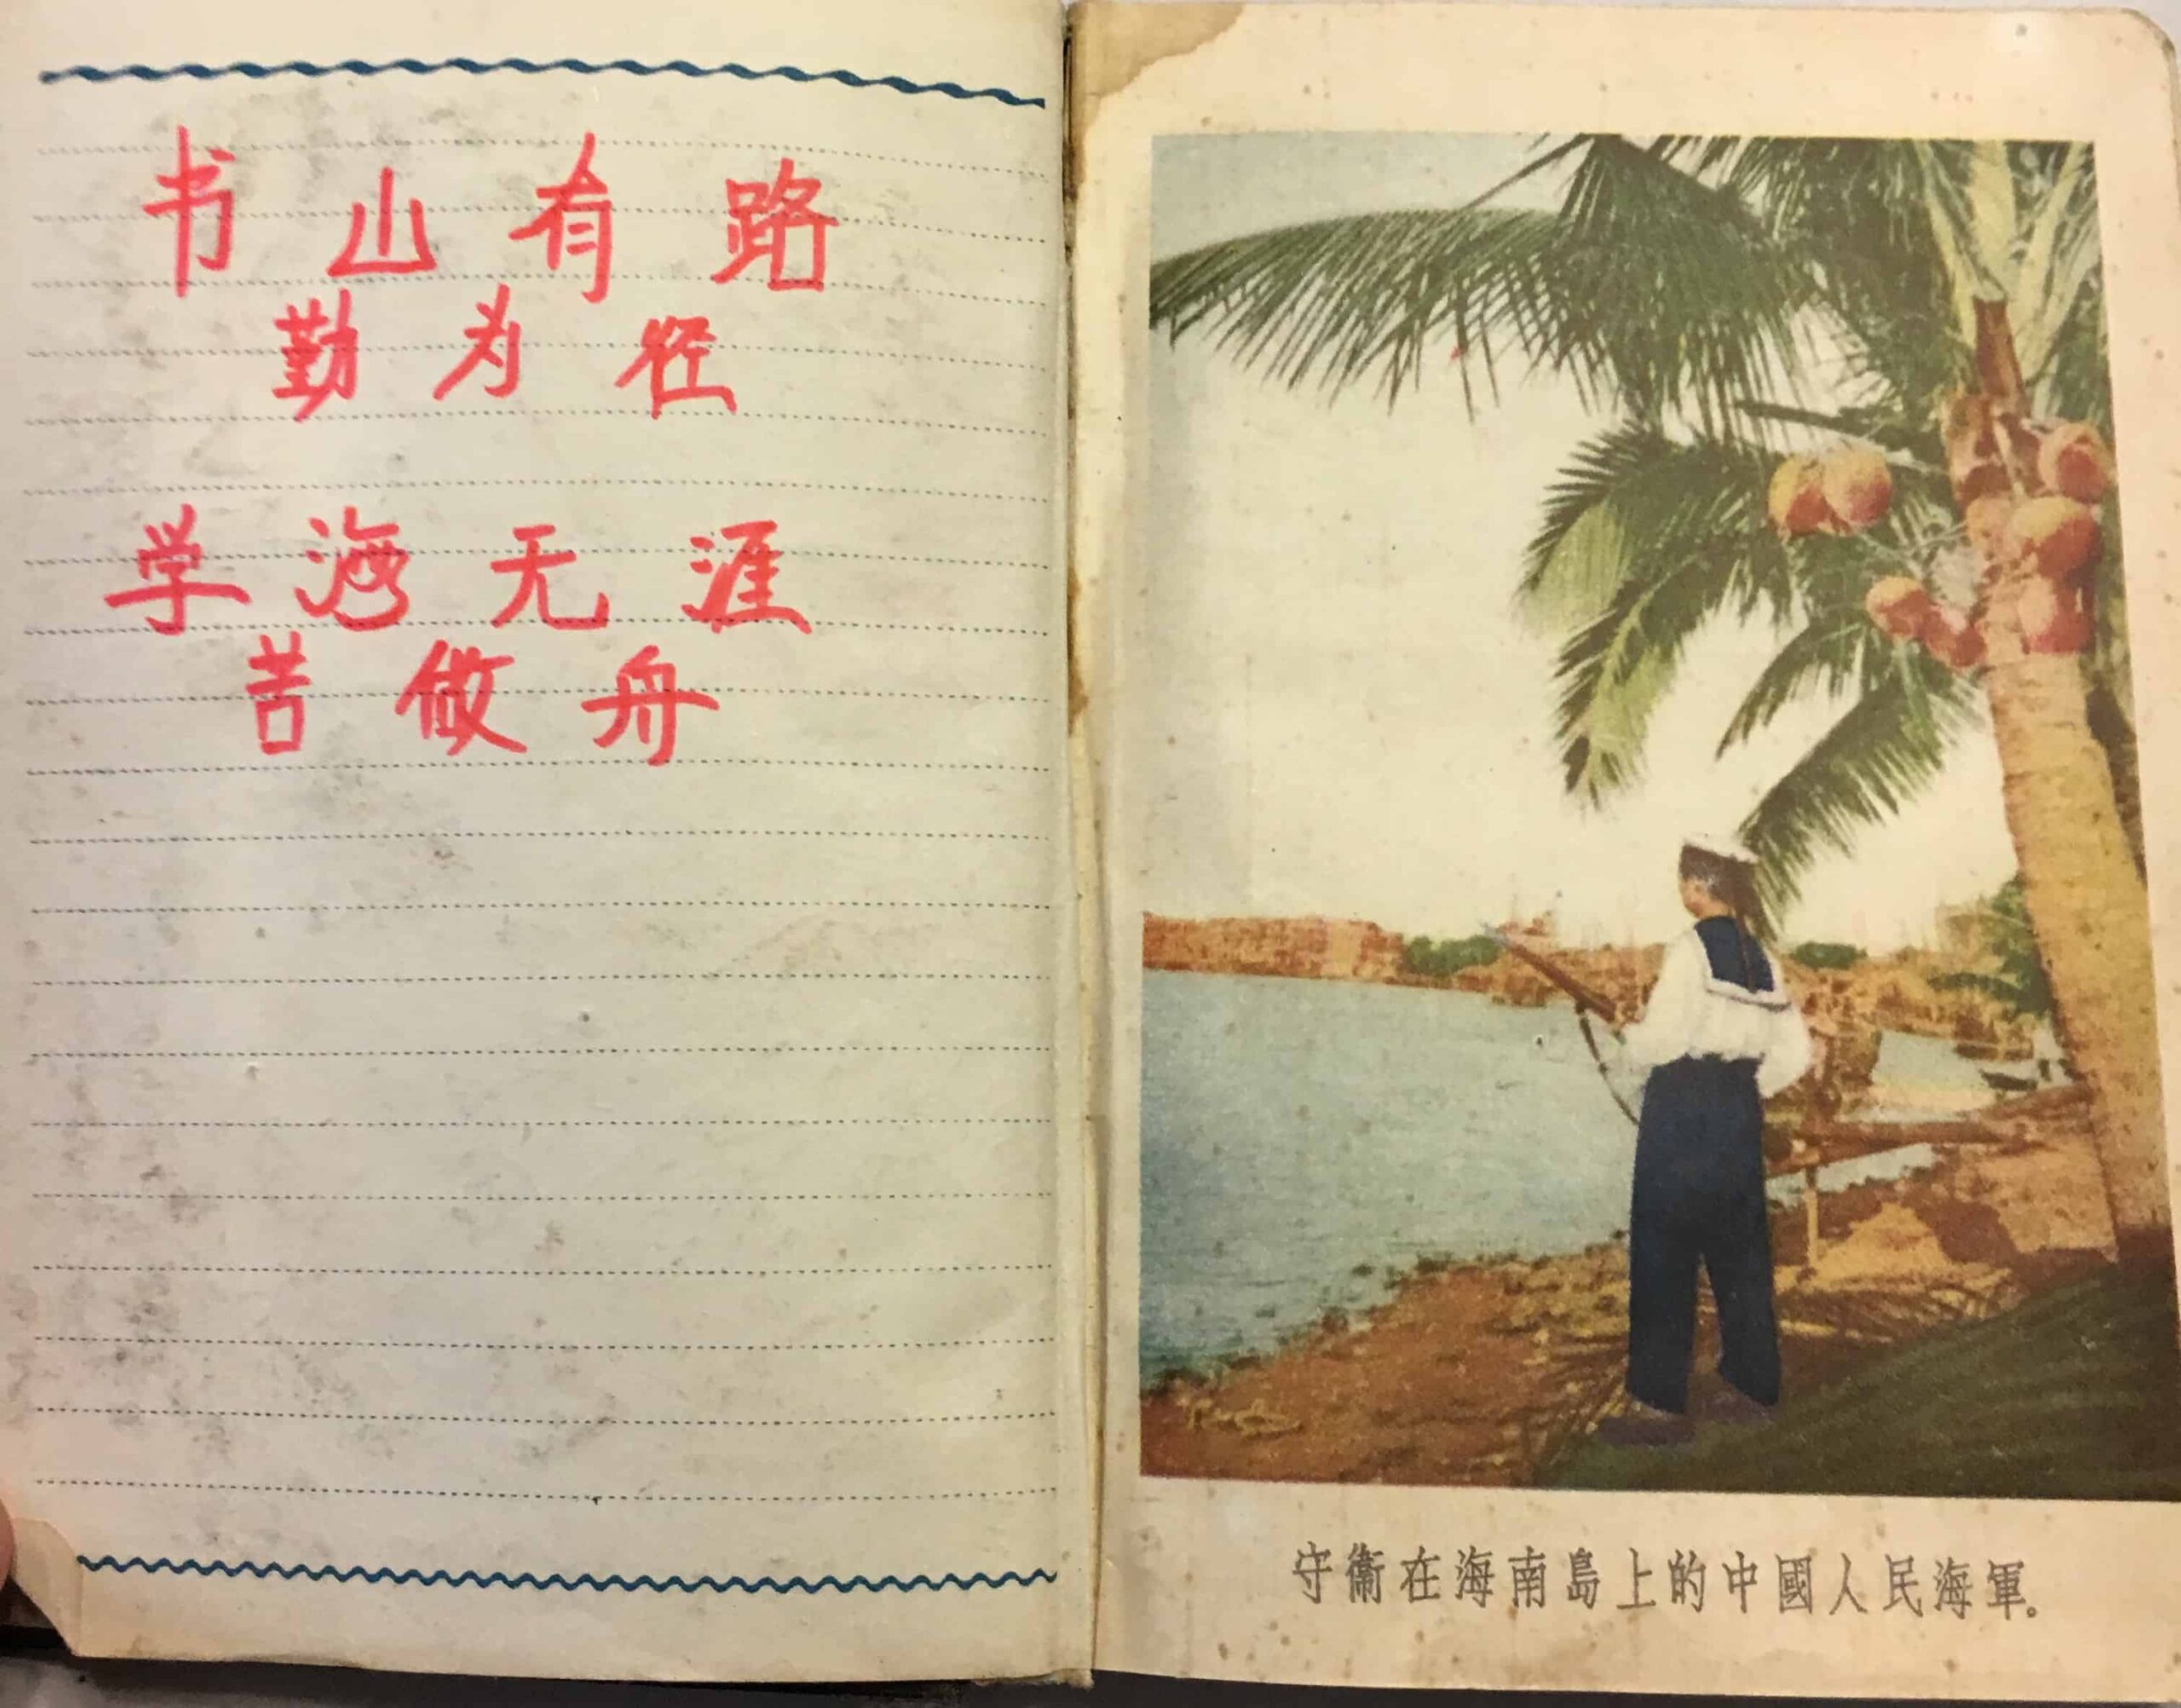 书山有路
勤为径
学海无涯
苦做舟
守衞在海南島上的中國人民海軍。